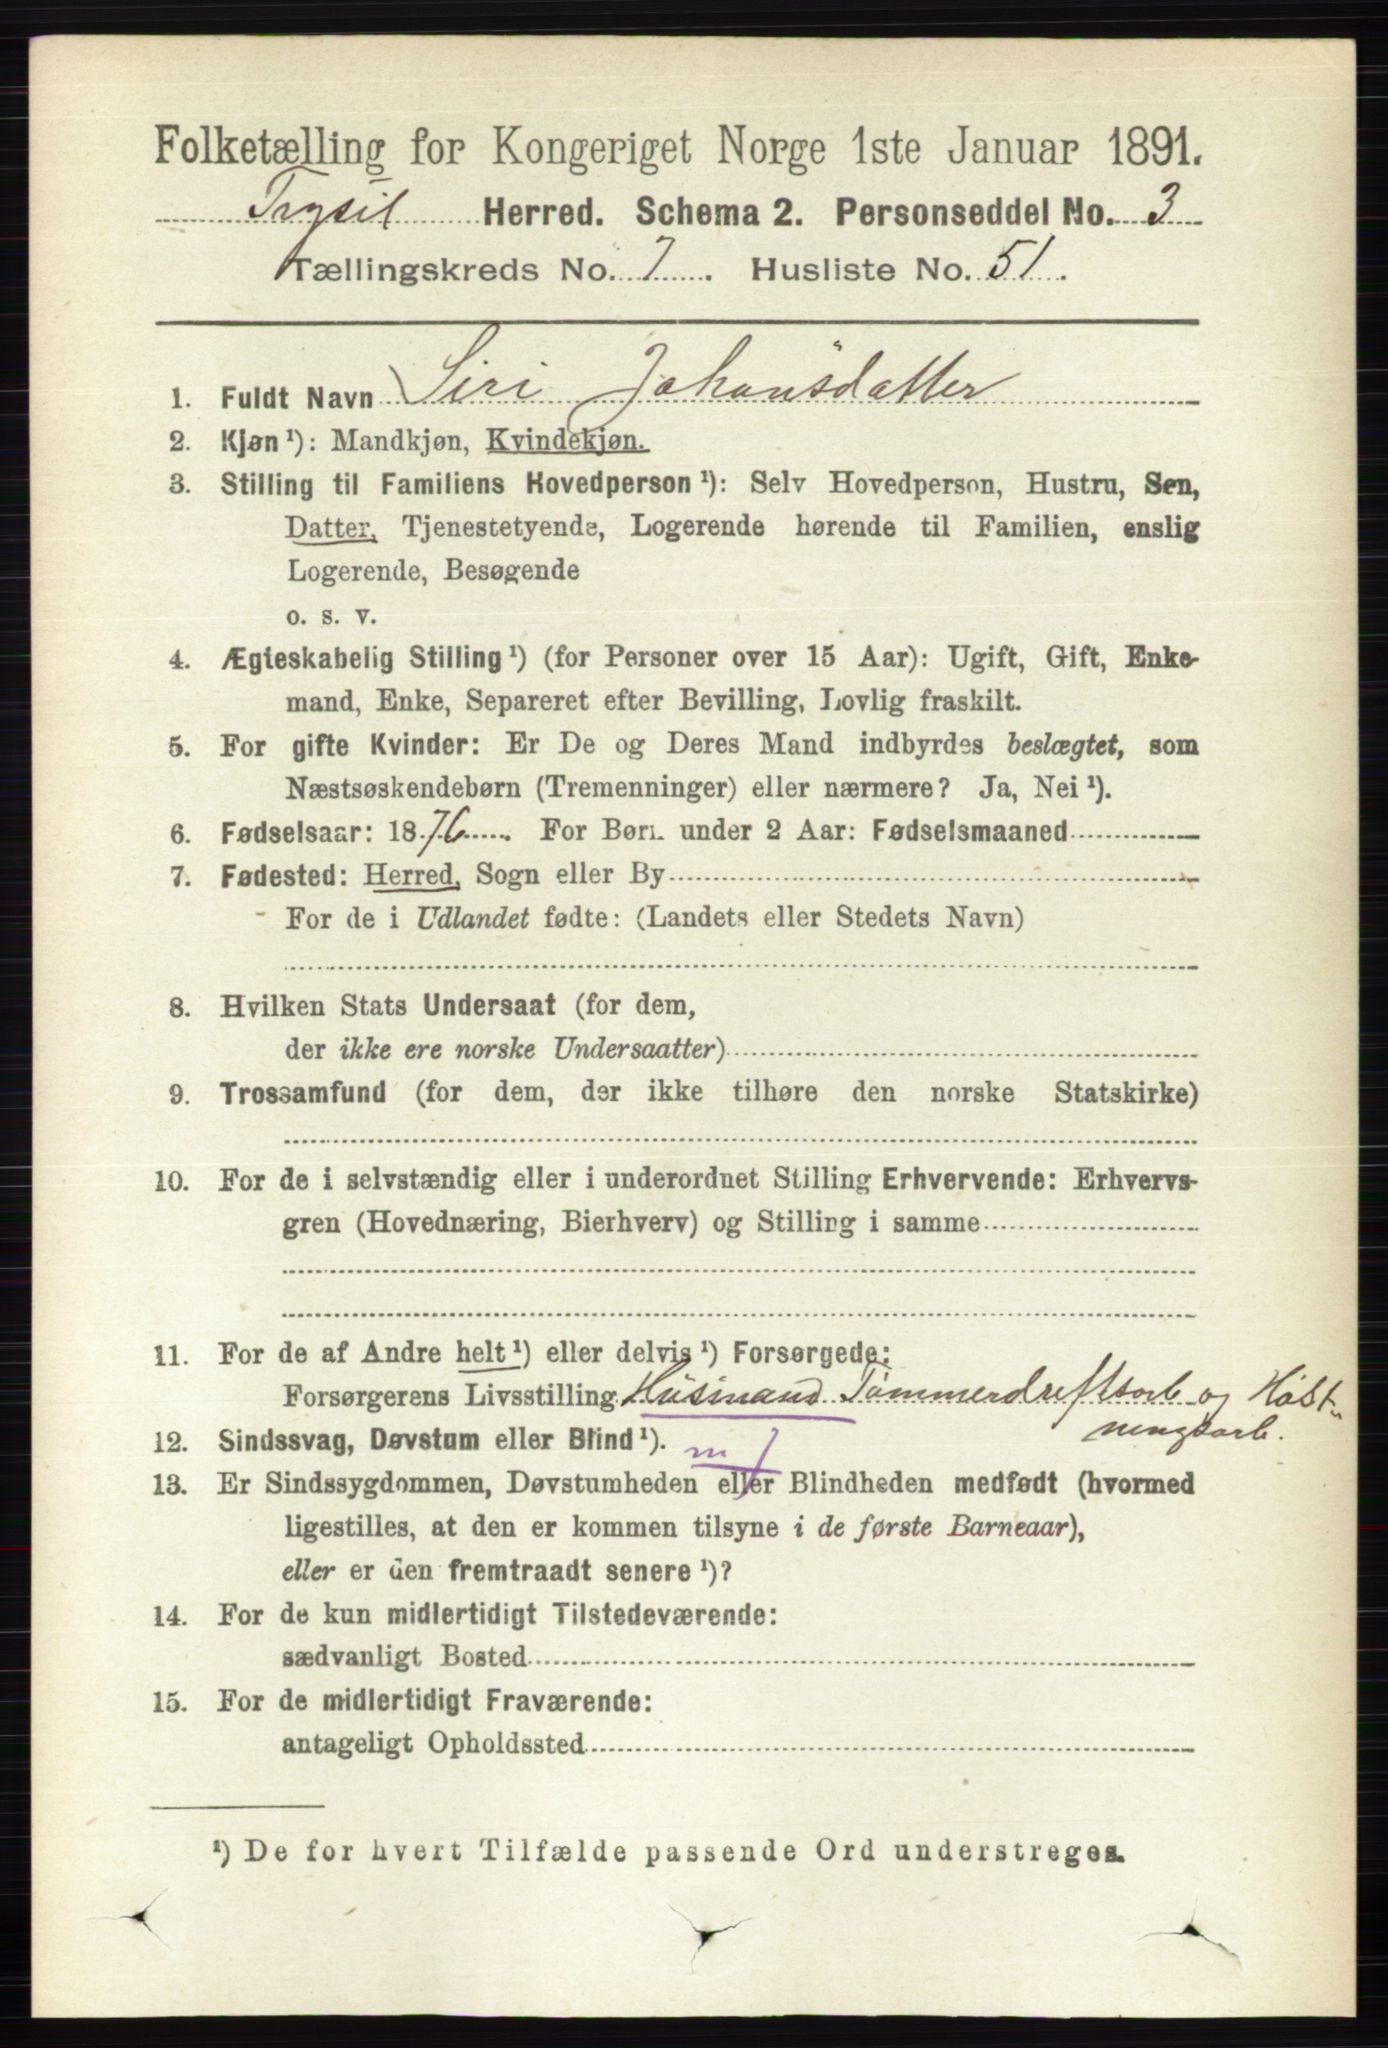 Folketælling for Kongeriget Norge 1ste Januar 1891.
Trysil Herred. Schema 2. Personseddel No. 3
Tællingskreds No. 7. Husliste No. 51.
1. Fuldt Navn Siri Johansdatter
2. Kjøn ¹): Mandkjøn, Kvindekjøn.
3. Stilling til Familiens Hovedperson ¹): Selv Hovedperson, Hustru, Søn,
Datter, Tjenestetyende, Logerende hørende til Familien, enslig
Logerende, Besøgende
o. s. v.
4. Ægteskabelig Stilling ¹) (for Personer over 15 Aar): Ugift, Gift, Enke-
mand, Enke, Separeret efter Bevilling, Lovlig fraskilt.
5. For gifte Kvinder: Er De og Deres Mand indbyrdes beslægtet, som
Næstsøskendebørn (Tremenninger) eller nærmere? Ja, Nei ¹).
6. Fødselsaar: 1876. For Børn under 2 Aar: Fødselsmaaned
7. Fødested: Herred, Sogn eller By
For de i Udlandet fødte: (Landets eller Stedets Navn)
8. Hvilken Stats Undersaat (for dem,
der ikke ere norske Undersaatter)
9. Trossamfund (for dem, der ikke tilhøre den norske Statskirke)
10. For de i selvstændig eller i underordnet Stilling Erhvervende: Erhvervs-
gren (Hovednæring, Bierhverv) og Stilling i samme
11. For de af Andre helt ¹) eller delvis ¹) Forsørgede:
Forsørgerens Livsstilling Husmand Tømmerdriftsarb og
ningsarb.
12. Sindssvag, Døvstum eller Blind ¹).
13. Er Sindssygdommen, Døvstumheden eller Blindheden medfødt (hvormed
ligestilles, at den er kommen tilsyne i de første Barneaar),
eller er den fremtraadt senere ¹)?
14. For de kun midlertidigt Tilstedeværende:
sædvanligt Bosted
15. For de midlertidigt Fraværende:
antageligt Opholdssted
¹) De for hvert Tilfælde passende Ord understreges.